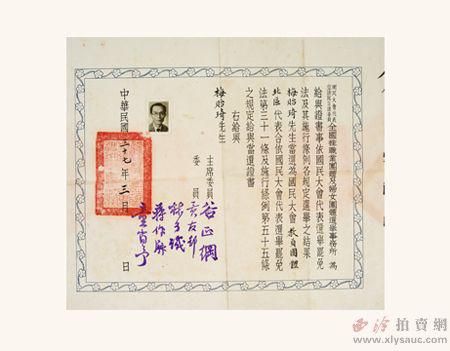 國民大會代表
立法院立法委員
全國性職業團體及婦女團體選舉事務所 為
給與證書事依國民大會代表選舉罷免
法及其施行條例各規定選舉之結果
梅貽琦先生當選為國民大會教員團體
北區代表合依國民大會代表選舉罷免
法第三十一條及施行條例第五十五條
之規定給與當選證書
右給與
梅貽琦先生
主席委員 谷正綱
委員
中華民國三十七年三月 日
西泠拍賣網
www.xlysauc.com